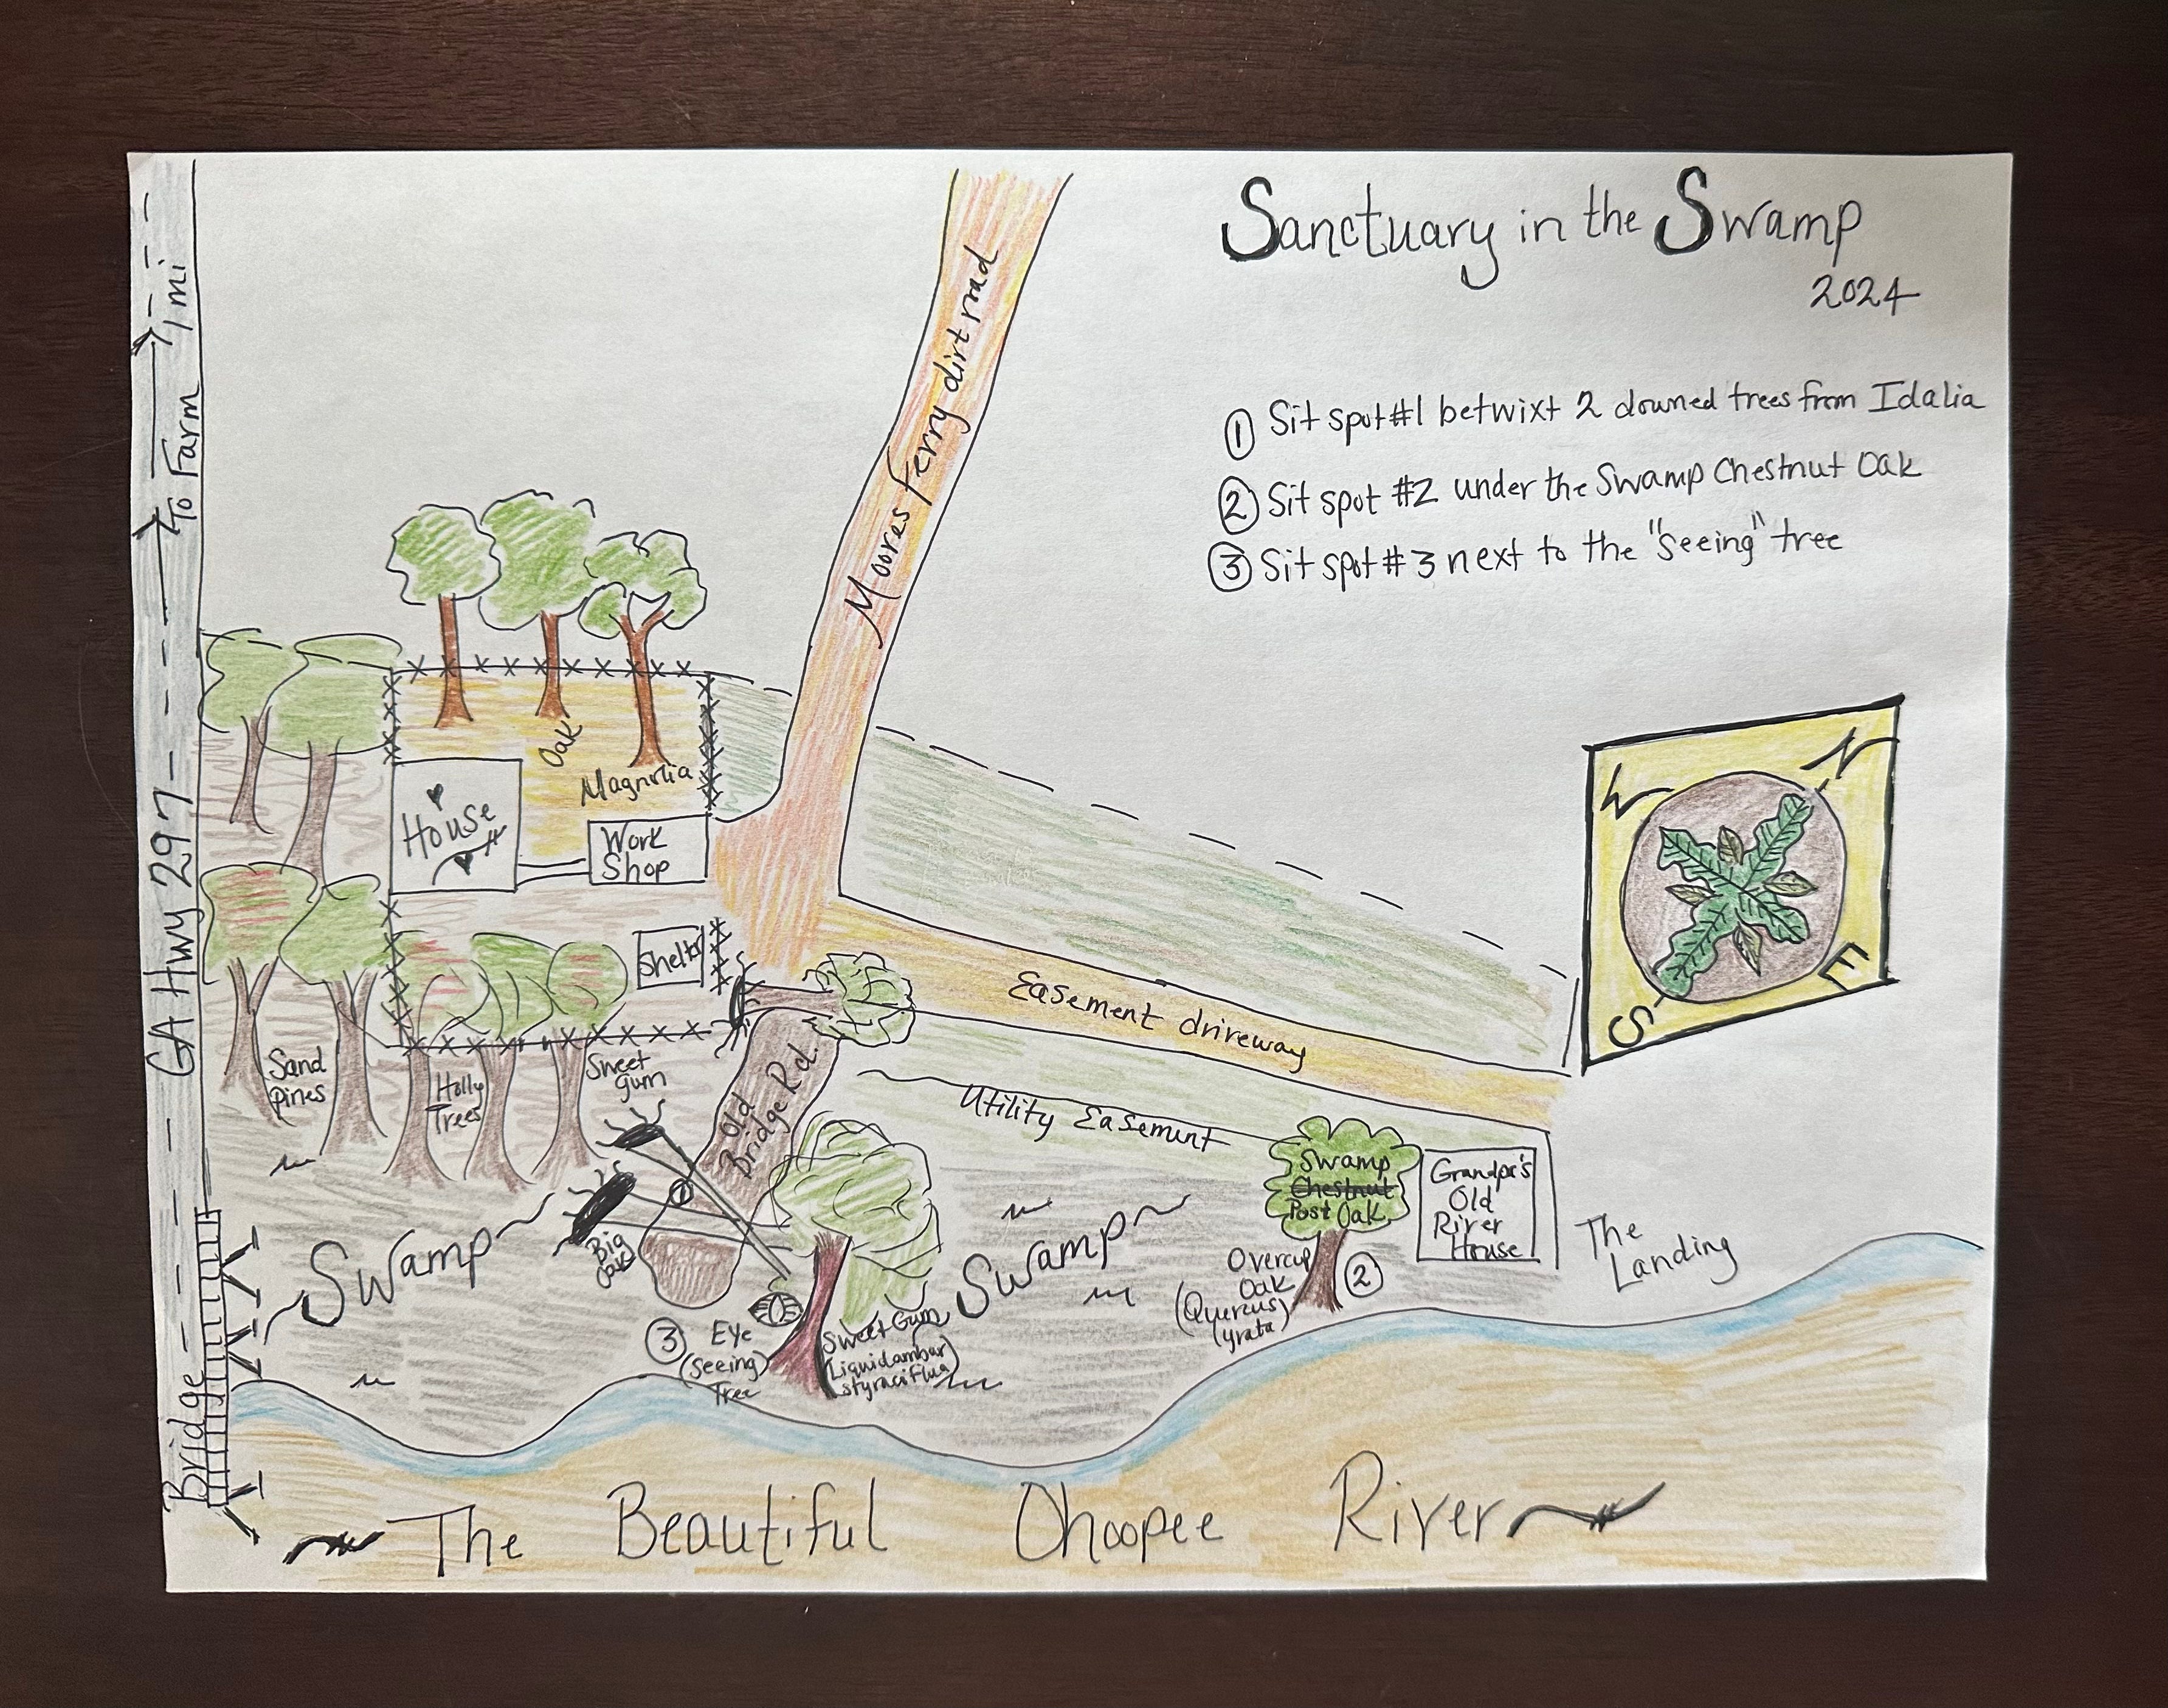 Sanctuary in the Swamp
2024
① Sit spot #1 betwixt 2 downed trees from Idalia
② Sit spot #2 under the Swamp Chestnut Oak
③ Sit spot #3 next to the "seeing" tree
To Farm 1 mi
GA Hwy 297
Bridge
Moores Ferry dirt road
Oak
Magnolia
House
Work
Shop
Shelter
W
N
S
E
Easement driveway
Utility Easement
Sand
Pines
Holly
Trees
Sweet
Gum
Old
Bridge Rd.
1
Big
Oak
Swamp
Swamp
Swamp
Chestnut
Post Oak
Overcup
Oak
(Quercus)
lyrata)
②
Grandpa's
Old
River
House
The
Landing
③
Eye
(Seeing)
Tree
Sweet Gum
(Liquidambar
styraciflua)
The Beautiful Ohoopee River